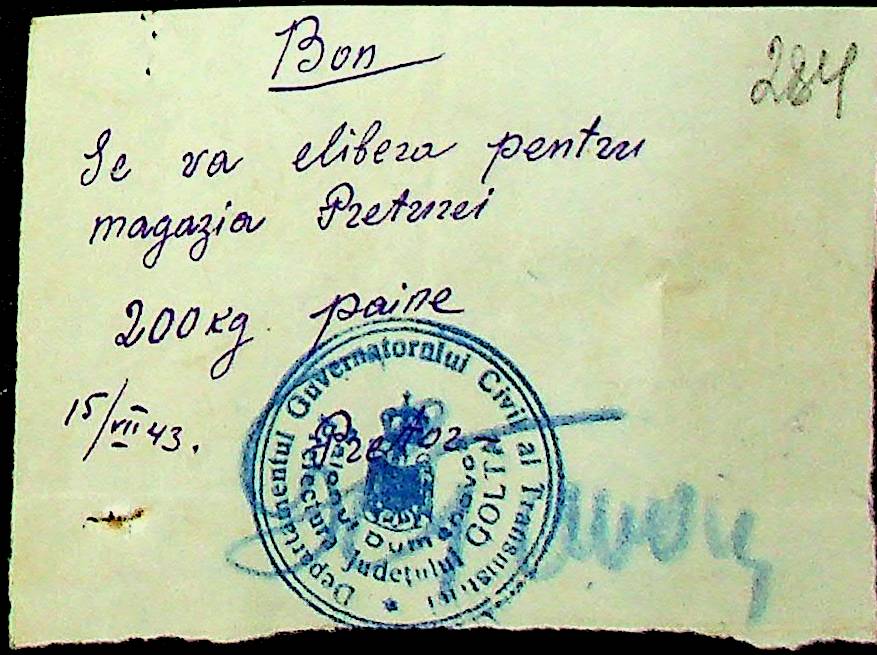 Bon
284
Se va elibera pentru
magazia Preturei
200 kg paine
15/VII 43.
Pretor
Departamentul Guvernatorului Civil al Transnistriei
Prefectura Județului GOLTA
Raionul Dumanovca